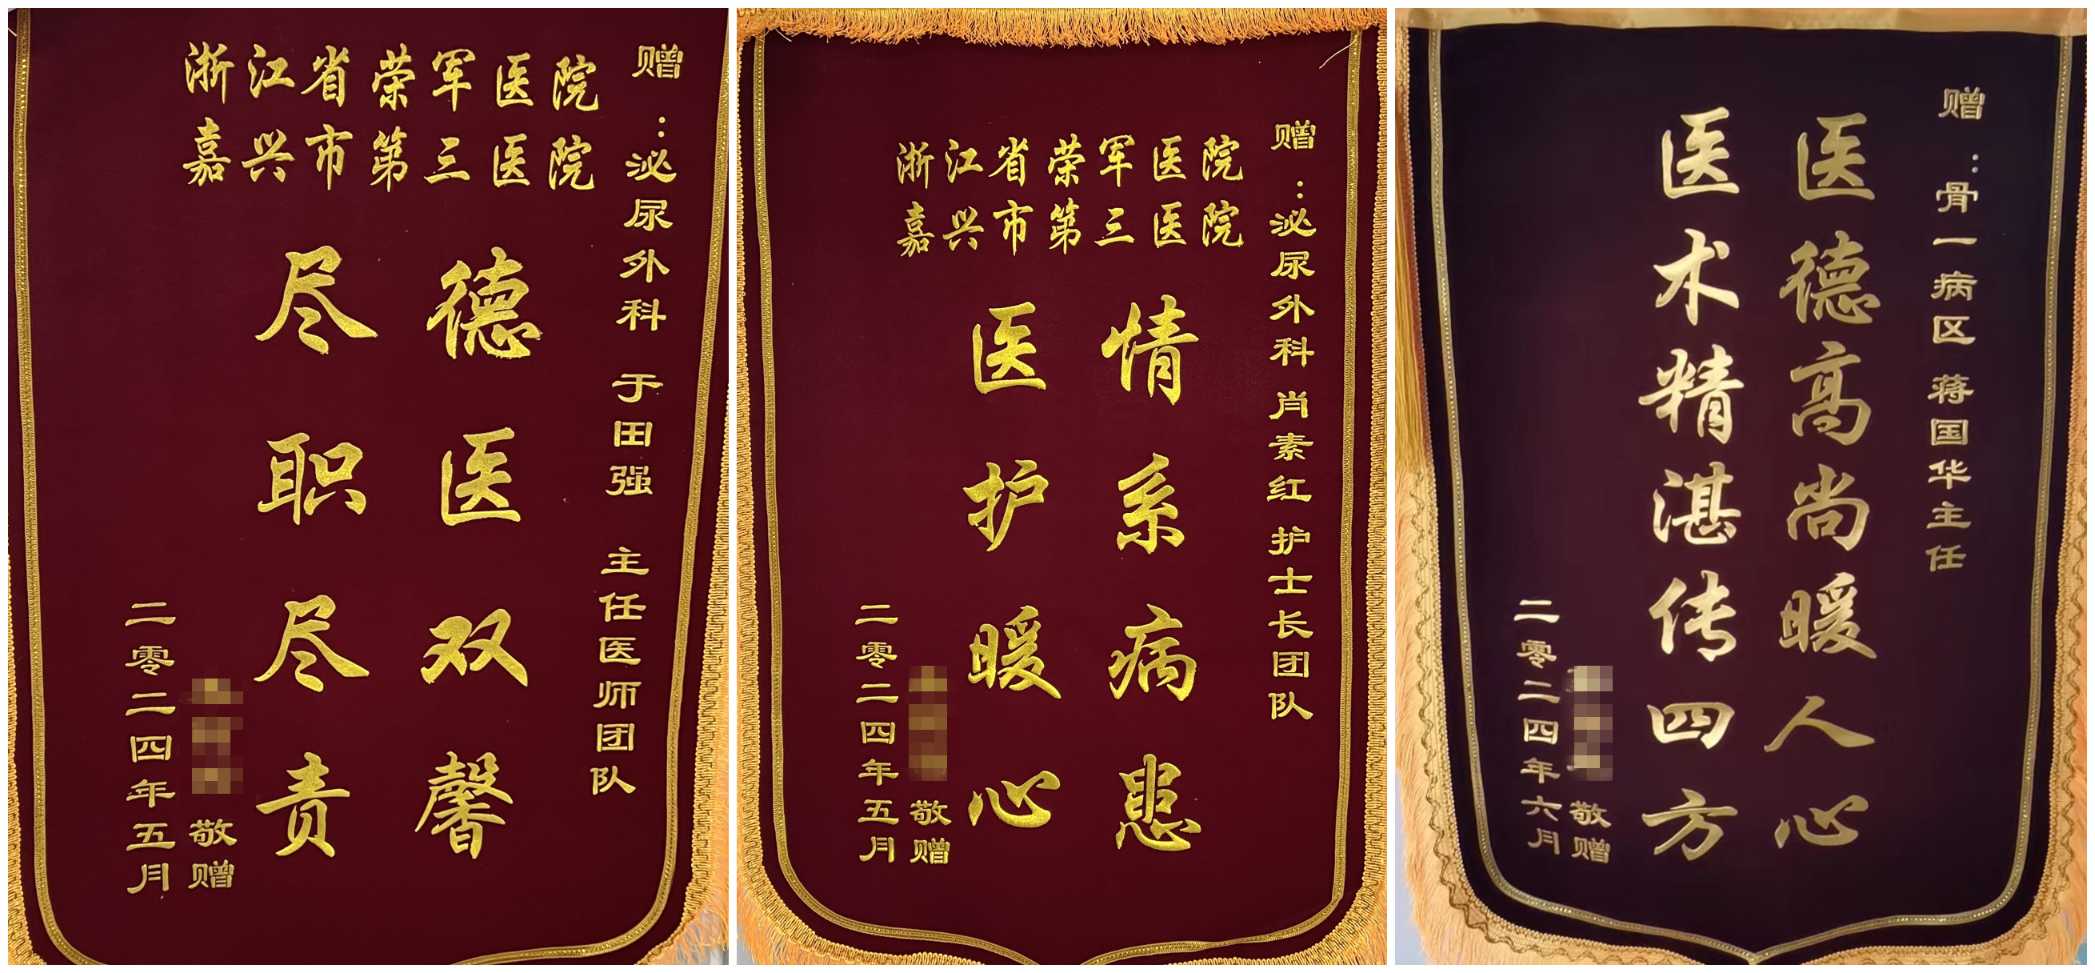 赠：泌尿外科 于田强 主任医师团队
浙江省荣军医院
嘉兴市第三医院
德医双馨
尽职尽责
敬赠
二零二四年五月
赠：泌尿外科肖素红 护士长团队
浙江省荣军医院
嘉兴市第三医院
情系病患
医护暖心
敬赠
二零二四年五月
赠：骨一病区 蒋国华主任
医德高尚暖人心
医术精湛传四方
敬赠
二零二四年六月